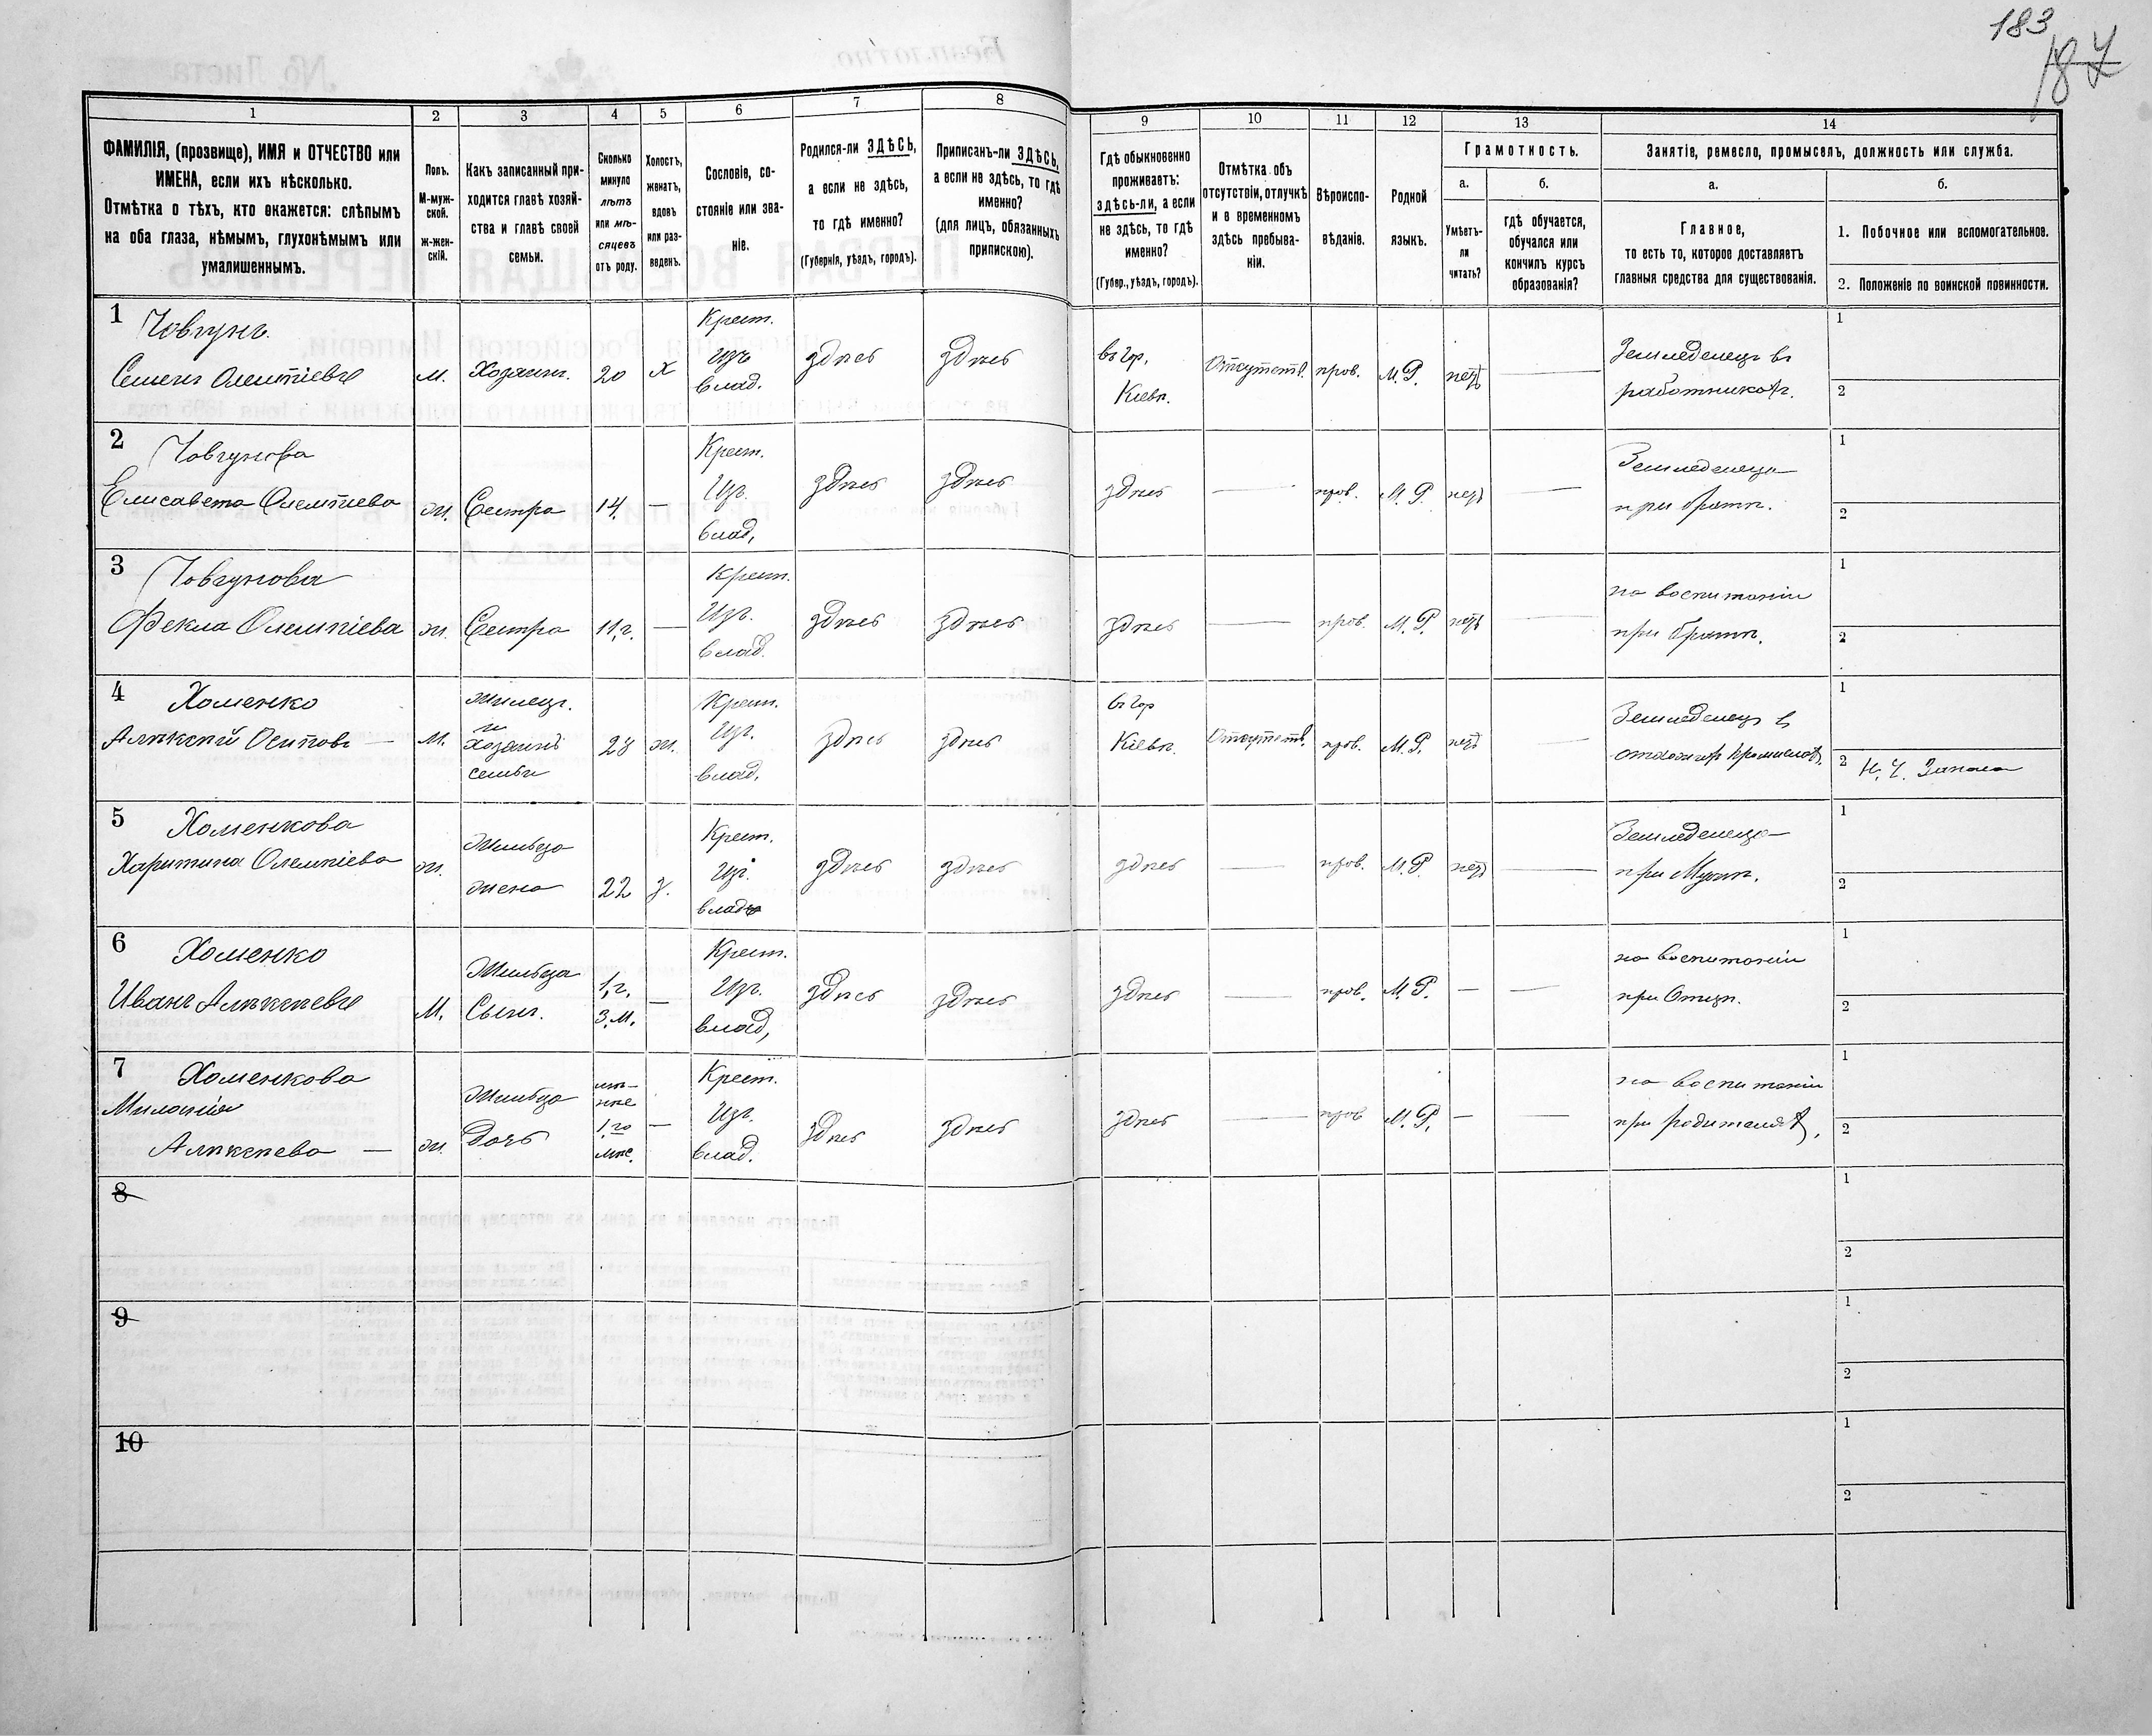 183
187
1
2
3
4
5
6
7
8
9
10
11
12
13
14
ФАМИЛІЯ, (прозвище), ИМЯ и ОТЧЕСТВО или
ИМЕНА, если ихъ нѣсколько.
Отмѣтка о тѣхъ, кто окажется: слѣпымъ
на оба глаза, нѣмымъ, глухонѣмымъ или
умалишеннымъ.
Полъ.
М-муж-
ской.
ж-жен-
скій.
Какъ записанный при-
ходится главѣ хозяй-
ства и главѣ своей
семьи.
Сколько
минуло
лѣтъ
или мѣ-
сяцевъ
отъ роду.
Холостъ,
женатъ,
вдовъ
или раз-
веденъ.
Сословіе, со-
стояніе или зва-
ніе.
Родился-ли ЗДѢСЬ,
а если не здѣсь,
то гдѣ именно?
(Губернія, уѣздъ, городъ).
Приписанъ-ли ЗДѢСЬ,
а если не здѣсь, то гдѣ
именно?
(для лицъ, обязанныхъ
припискою).
Гдѣ обыкновенно
проживаетъ:
здѣсь-ли, а если
не здѣсь, то гдѣ
именно?
(Губер., уѣздъ, городъ).
Отмѣтка объ
отсутствіи, отлучкѣ
и о временномъ
здѣсь пребыва-
ніи.
Вѣроиспо-
вѣданіе.
Родной
языкъ.
Грамотность.
а.
Умѣетъ-
ли
читать?
б.
гдѣ обучается,
обучался или
кончилъ курсъ
образованія?
Занятіе, ремесло, промыселъ, должность или служба.
а.
Главное,
то есть то, которое доставляетъ
главныя средства для существованія.
б.
1. Побочное или вспомогательное.
2. Положеніе по воинской повинности.
1 Човгунъ
Семенъ Олемпіевъ
м.
Хозяинъ.
20
х
Крест.
Изъ
влад.
здѣсь
здѣсь
въ гор.
Кіевѣ.
Отсутств.
пров.
М.Р.
нѣтъ
Земледелецъ въ
работникахъ.
1
2
2 Човгунова
Елисавета Олемпіева
ж.
Сестра
14.
—
Крест.
Изъ.
влад,
здѣсь
здѣсь
здѣсь
—
пров.
М.Р.
нѣтъ
—
Земледелица
при братѣ.
1
2
3 Човгунова
Фекла Олемпіева
ж.
Сестра
11,г.
—
Крест.
Изъ.
влад.
здѣсь
здѣсь
здѣсь
—
пров.
М.Р.
нѣтъ
на воспитаніи
при братѣ.
1
2
4 Хоменко
Алѣксѣй Осиповъ —
м.
Жилецъ.
и
хозяинъ
семьи
28
ж.
Крест.
Изъ.
влад,
здѣсь
здѣсь
въ гор
Кіевѣ.
Отсутств.
пров.
М.Р.
нѣтъ
Земледелецъ в
1
2 Н. Ч. Запаса
5 Хоменкова
Харитина Олемпіева
ж.
Жильца
жена
22
з.
Крест.
Изъ.
влад
здѣсь
здѣсь
здѣсь
—
пров.
М.Р.
нѣтъ
—
Земледелица
при Мужѣ.
1
2
6 Хоменко
Иванъ Алѣксѣевъ
м.
Жильца
Сынъ.
1,г,
3.м.
—
Крест.
Изъ.
влад,
здѣсь
здѣсь
здѣсь
—
пров.
М.Р.
—
—
на воспитаніи
при Отцѣ.
1
2
7 Хоменкова
Миланія
Алѣксѣева —
ж.
Жильца
Дочь
1го
мѣс.
—
Крест.
Изъ.
влад.
здѣсь
здѣсь
здѣсь
—
пров
М.Р,
—
—
на воспитаніи
при родителях,
1
2
8
1
2
9
1
2
10
1
2